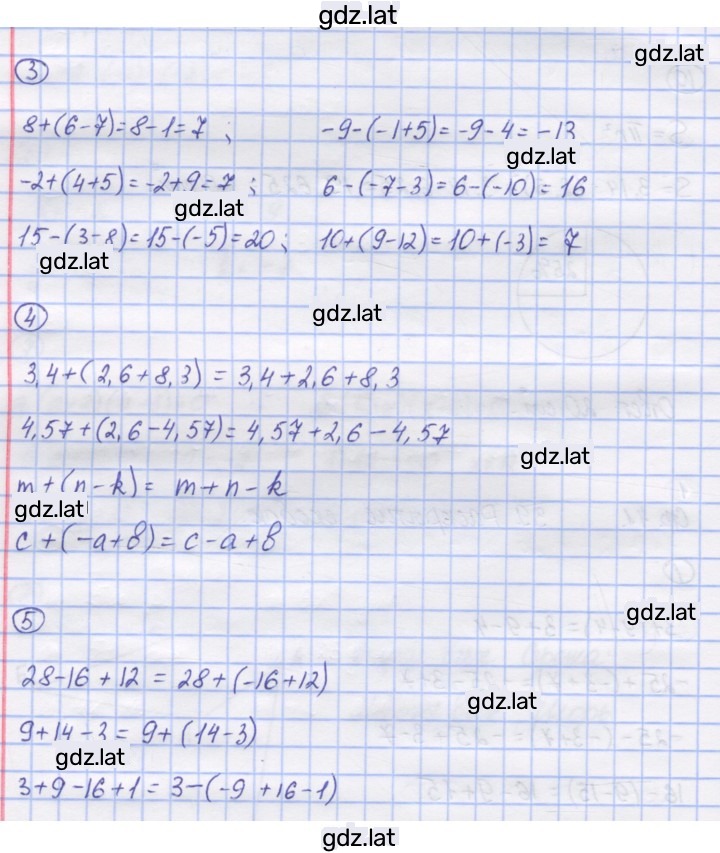 gdz.lat
gdz.lat
3
8+(6-7)=8-1=7 ; -9-(-1+5)=-9-4=-13
gdz.lat
-2+(4+5)=-2+9=7 ; 6-(-7-3)=6-(-10)=16
gdz.lat
15-(3-8)=15-(-5)=20; 10+(9-12)=10+(-3)= 7
gdz.lat
4
gdz.lat
3,4+(2,6+8,3) = 3,4+2,6+8,3
4,57+(2,6-4,57)=4,57+2,6-4,57
gdz.lat
m+(n-k)= m+n-k
gdz.lat
c+(-a+b)=c-a+b
5
gdz.lat
28-16+12 = 28+(-16+12)
gdz.lat
9+14-3= 9+(14-3)
gdz.lat
3+9-16+1= 3-(-9+16-1)
gdz.lat